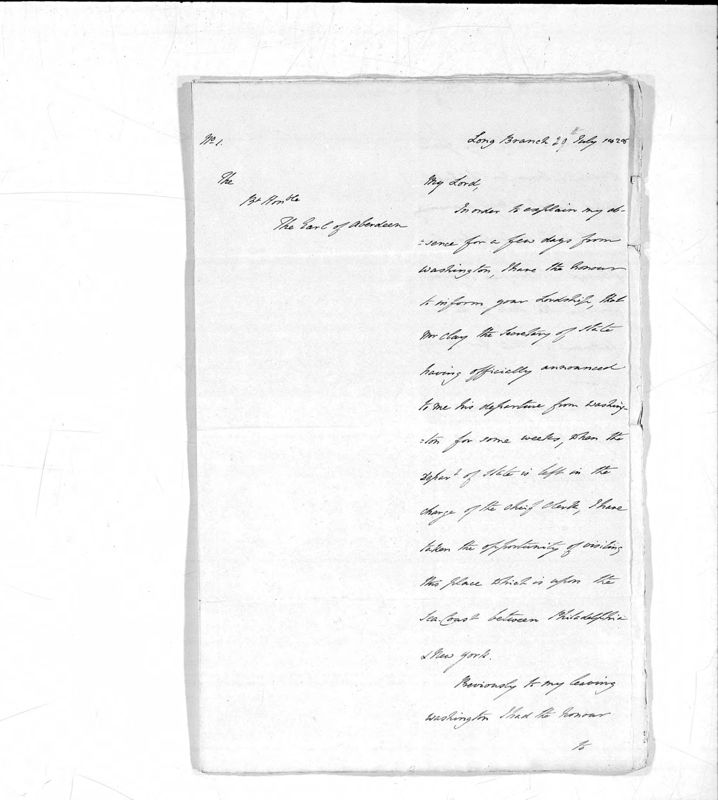 No. 1.
Long Branch 29th July 1828
The
Rt Honble
The Earl of Aberdeen
My Lord,
In order to explain my ab-
:sence for a few days from
Washington, I have the honour
to inform your Lordship, that
Mr Clay the Secretary of State
having officially announced
to me his departure from Washing-
:ton for some weeks, when the
Depart. of State is left in the
charge of the Chief Clerk, I have
taken the opportunity of visiting
this place which is upon the
Sea Coast between Philadelphia
& New York.
Previously to my leaving
Washington I had the honour
to